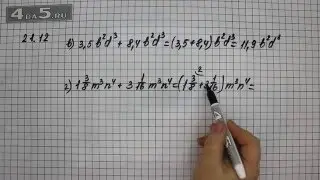 4ГДЗ.РУ
21.12
в) 3,5b²d³ + 8,4b²d³ = (3,5+8,4)b²d³ = 11,9b²d³
г) 1 3/8 m³n⁴ + 3 1/16 m³n⁴ = (1 3/8² + 3 1/16) m³n⁴ =